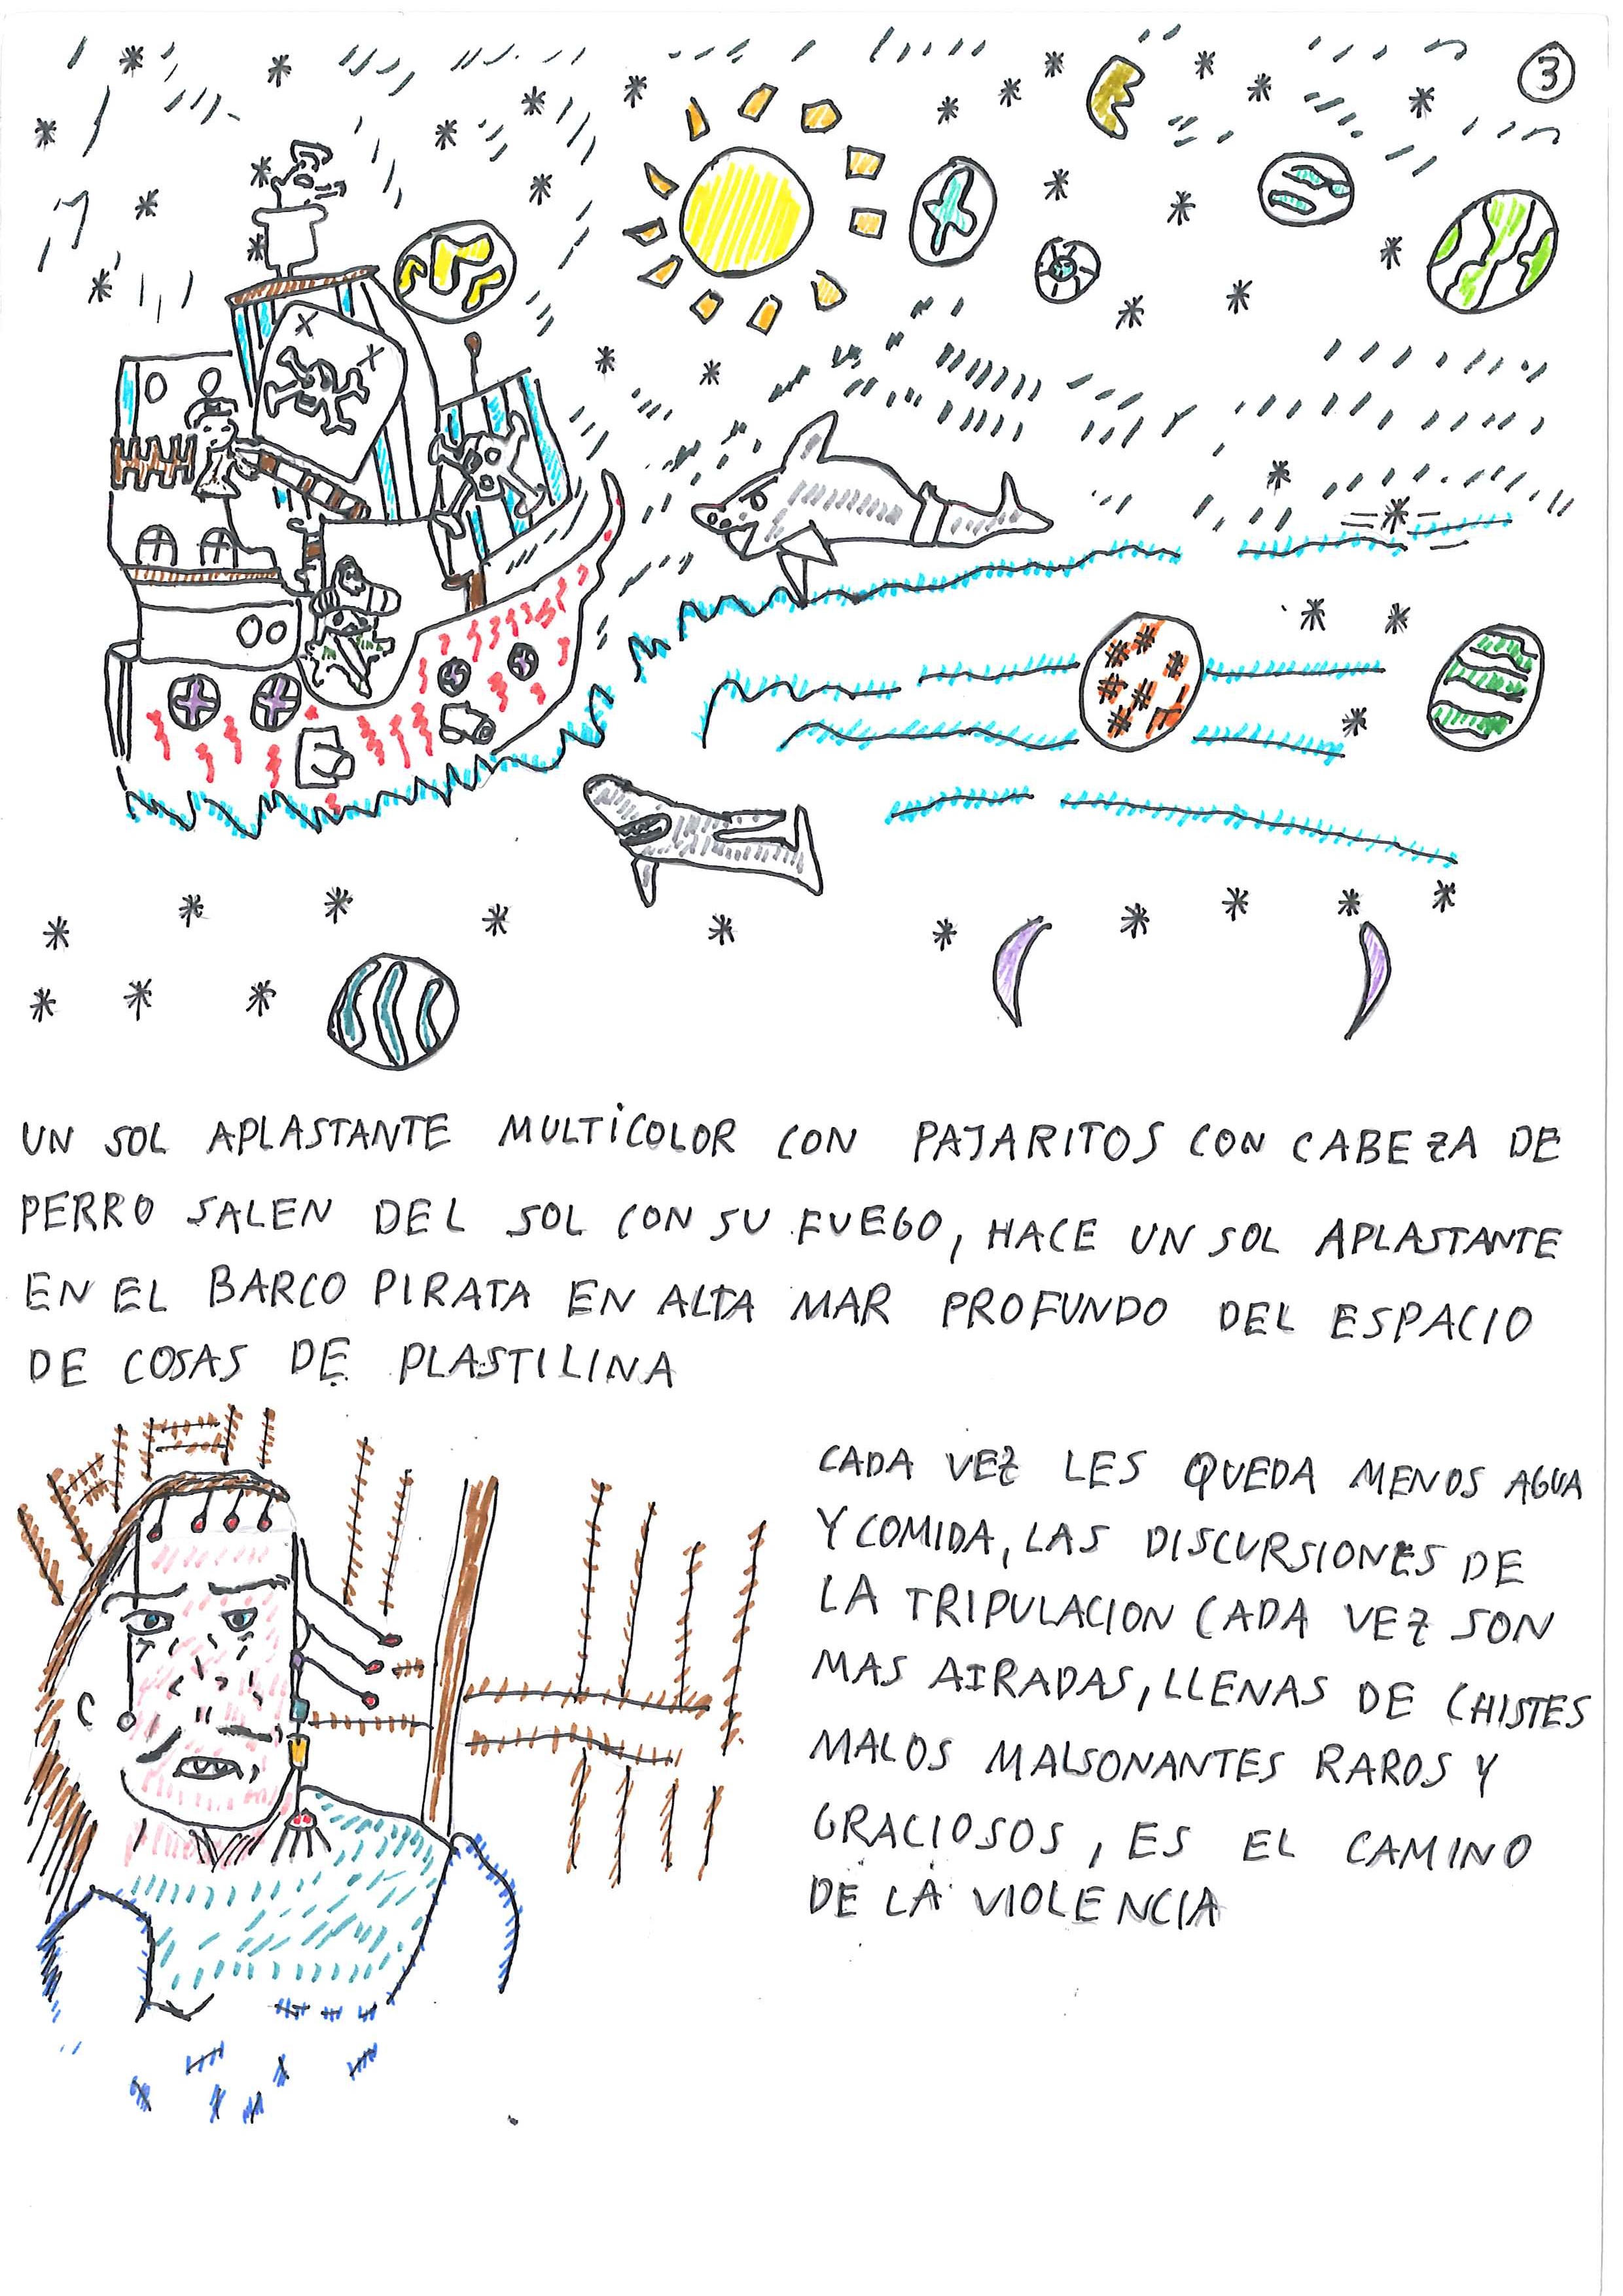 3
UN SOL APLASTANTE MULTICOLOR CON PAJARITOS CON CABEZA DE
PERRO SALEN DEL SOL CON SU FUEGO, HACE UN SOL APLASTANTE
EN EL BARCO PIRATA EN ALTA MAR PROFUNDO DEL ESPACIO
DE COSAS DE PLASTILINA
CADA VEZ LES QUEDA MENOS AGUA
Y COMIDA, LAS DISCURSIONES DE
LA TRIPULACION CADA VEZ SON
MAS AIRADAS, LLENAS DE CHISTES
MALOS MALSONANTES RAROS Y
GRACIOSOS, ES EL CAMINO
DE LA VIOLENCIA